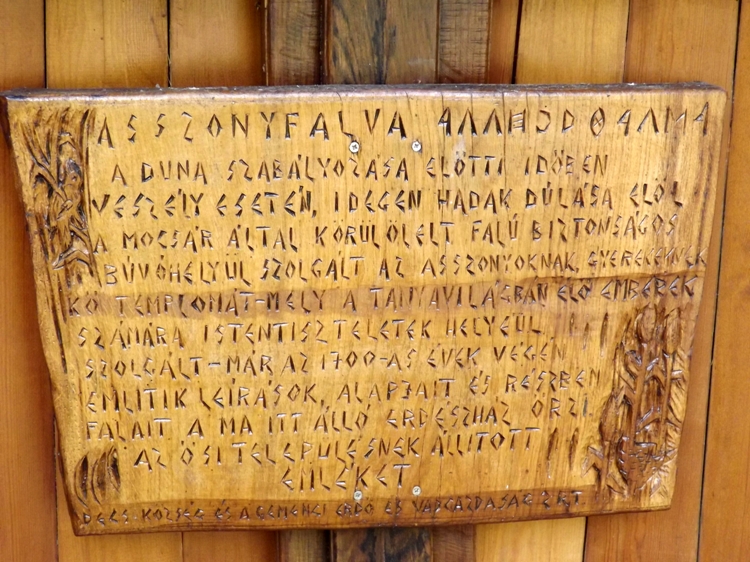 ASSZONYFALVA 𐲀𐲤𐲤𐲯𐲛𐲚𐲌𐲀𐲖𐲮𐲀
A DUNA SZABÁLYOZÁSA ELŐTTI IDŐBEN
VESZÉLY ESETÉN, IDEGEN HADAK DÚLÁSA ELŐL
A MOCSÁR ÁLTAL KÖRÜLÖLELT FALÚ BIZTONSÁGOS
BÚVÓHELYÜL SZOLGÁLT AZ ASSZONYOKNAK, GYEREKEKNEK
KŐ TEMPLOMÁT-MELY A TANYAVILÁGBAN ÉLŐ EMBEREK
SZÁMÁRA ISTENTISZTELETEK HELYÉÜL
SZOLGÁLT-MÁR AZ 1700-AS ÉVEK VÉGÉN
EMLÍTIK LEÍRÁSOK, ALAPJAIT ÉS RÉSZBEN
FALAIT A MA ITT ÁLLÓ ERDÉSZHÁZ ŐRZI
AZ ŐSI TELEPÜLÉSNEK ÁLLÍTOTT
EMLÉKET
DECS KÖZSÉG ÉS A GEMENCI ERDŐ ÉS VADGAZDASÁG ZRT.